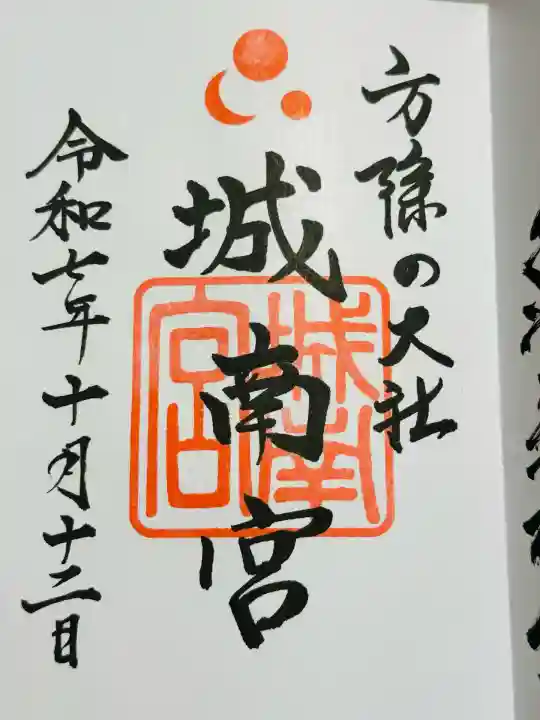 方除の大社
城南宮
城南宮
令和七年十月十二日